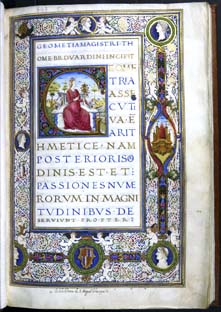 GEOMETIA MAGISTRI TH
OME BRDVARDINI INCIPIT
GEOME
TRIA
ASSE
CVTI
VA E
ARIT
HMETICE NAM
POSTERIORIS O
DINIS EST ET
PASSIONES NVME
RORVM IN MAGNI
TVDINIBVS DE
SERVIVNT PROPTERI